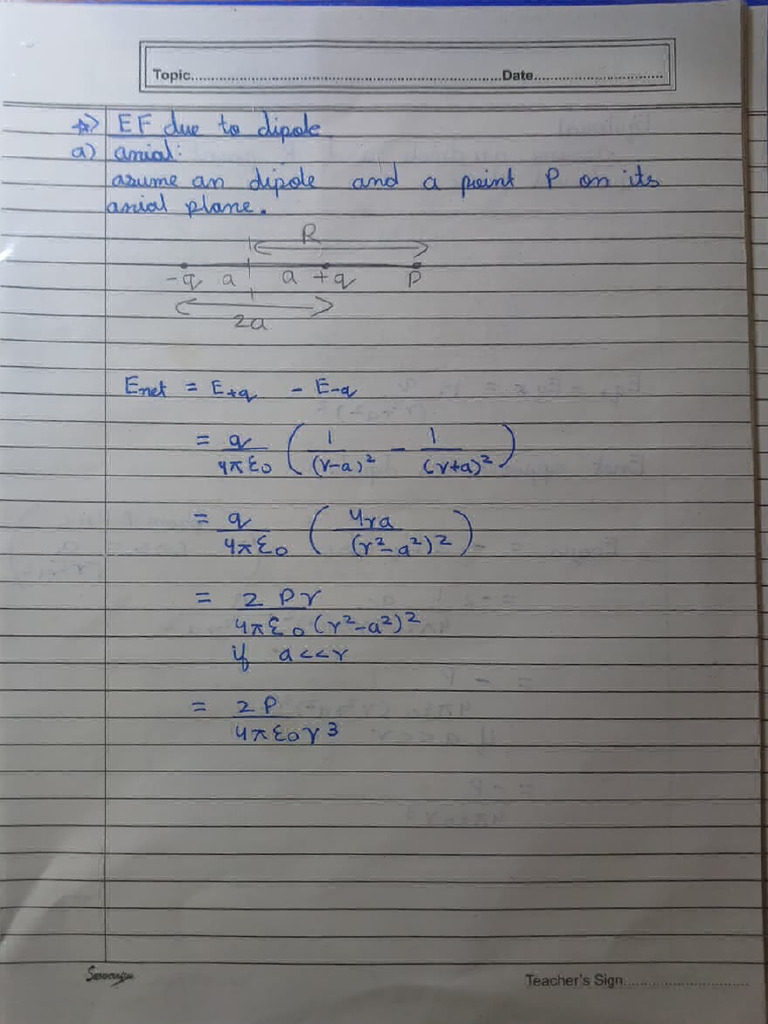 Topic.......................Date.......................
☆> EF due to dipole
a) axial:
assume an dipole and a point P on its
axial plane.
R
-q a a +q P
2a
Enet = E+q - E-q
= q/4πε0 (1/(r-a)² - 1/(r+a)²)
= q/4πε0 (4ra/(r²-a²)²)
= 2Pr/4πε0(r²-a²)²
if a<<r
= 2P/4πε0r³
Teacher's Sign.......................